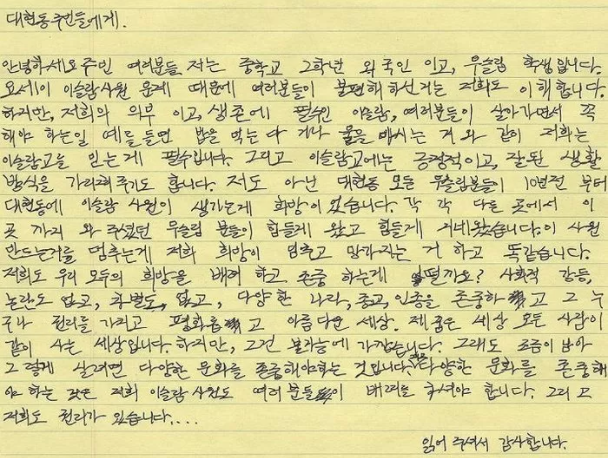 대현동 주민들에게.
안녕하세요 주민 여러분들 저는 중학교 2학년 외국인 이고, 무슬림 학생입니다.
요세이 이슬람사원 문제 때문에 여러분들이 불편해 하신거는 저희도 이해합니다.
하지만, 저희의 의무 이고, 생존에 필수인 이슬람, 여러분들이 살아가면서 꼭
해야 하는일 예를 들면 밥을 먹는 다 거나 물을 마시는 거 와 같이 저희는
이슬람교을 믿는게 필수입니다. 그리고 이슬람교에는 긍정적이고, 잘된 생활
방식을 가리켜주기도 합니다. 저도 아닌 대현동 모든 무슬림분들이 10년전 부터
대현동에 이슬람 사원이 생기는게 희망이 있습니다. 각 각 다른 곳에서 이
곳 까지 와 주셨던 무슬림 분들이 힘들게 왔고 힘들게 지내왔습니다. 이 사원
만드는거를 멈추는게 저희 희망이 멈추고 망가지는 거 하고 똑같습니다.
저희도 우리 모두의 희망을 배려 하고 존중 하는게 어떨까요? 사회적 갈등,
논란도 없고, 차별도, 없고, 다양한 나라, 종교, 인종을 존중하고 그 누
구나 권리를 가지고 평화롭고 아름다운 세상. 제 꿈은 세상 모든 사람이
같이 사는 세상입니다. 하지만, 그건 불가능에 가깝습니다. 그래도 조금이 남아
그렇게 살려면 다양한 문화를 존중해야하는 것입니다. 다양한 문화를 존중해
야 하는 것은 저희 이슬람사원도 여러분들이 배려를 하셔야 합니다. 그리고
저희도 권리가 있습니다....
읽어 주셔서 감사합니다.